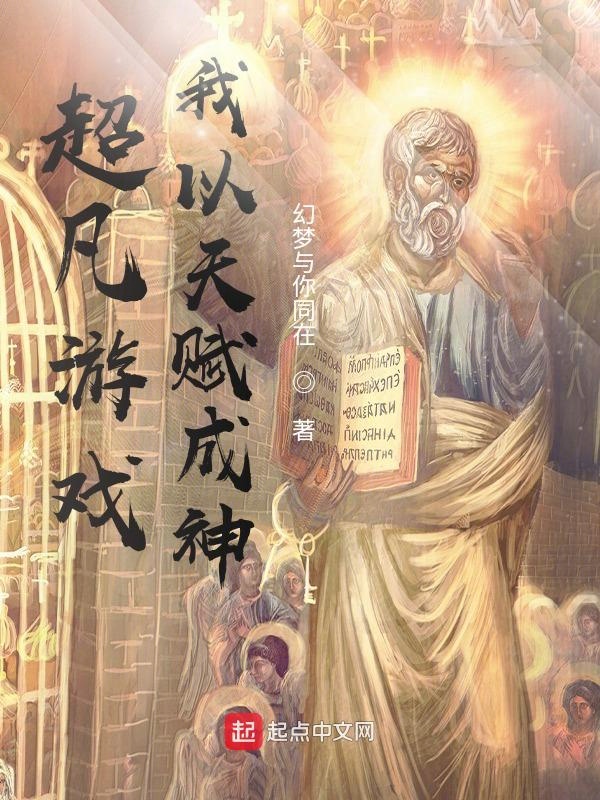 超凡游戏
我以天赋成神
幻梦与你同在 ◎ 著
起 起点中文网